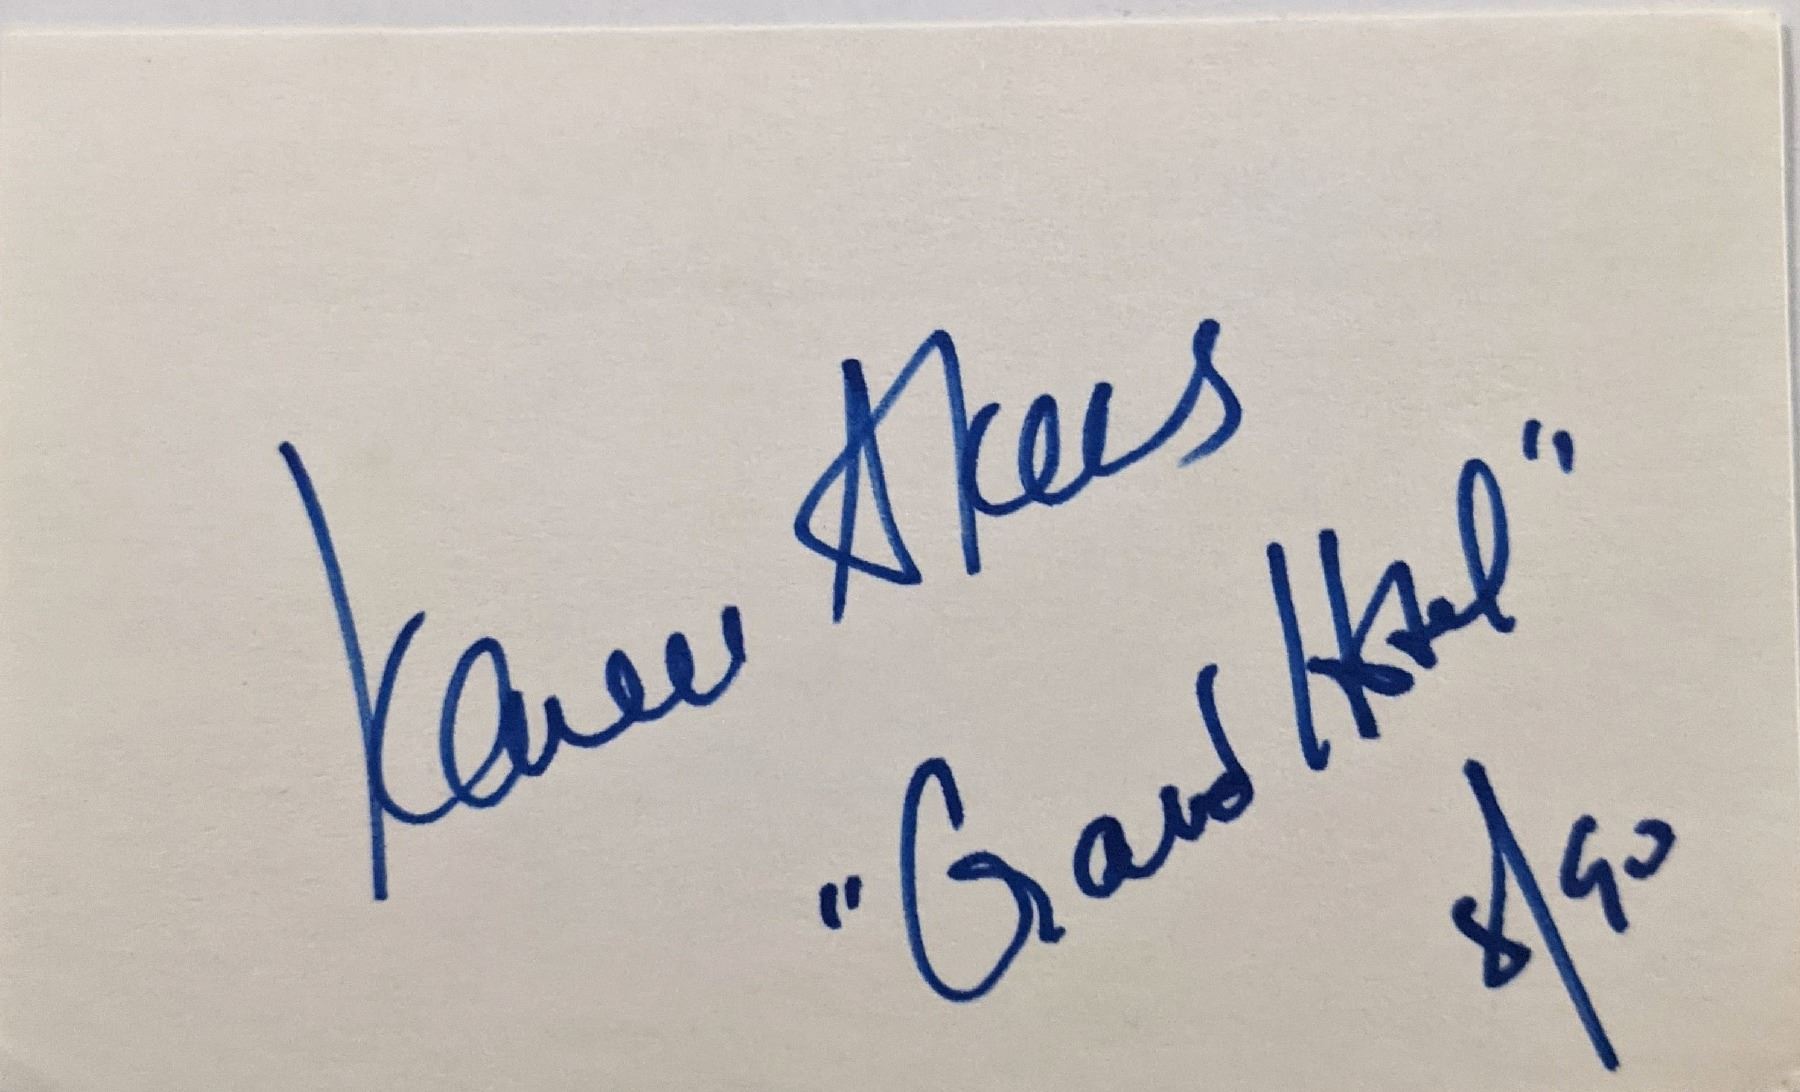 Karen Akers
"Grand Hotel"
8/90